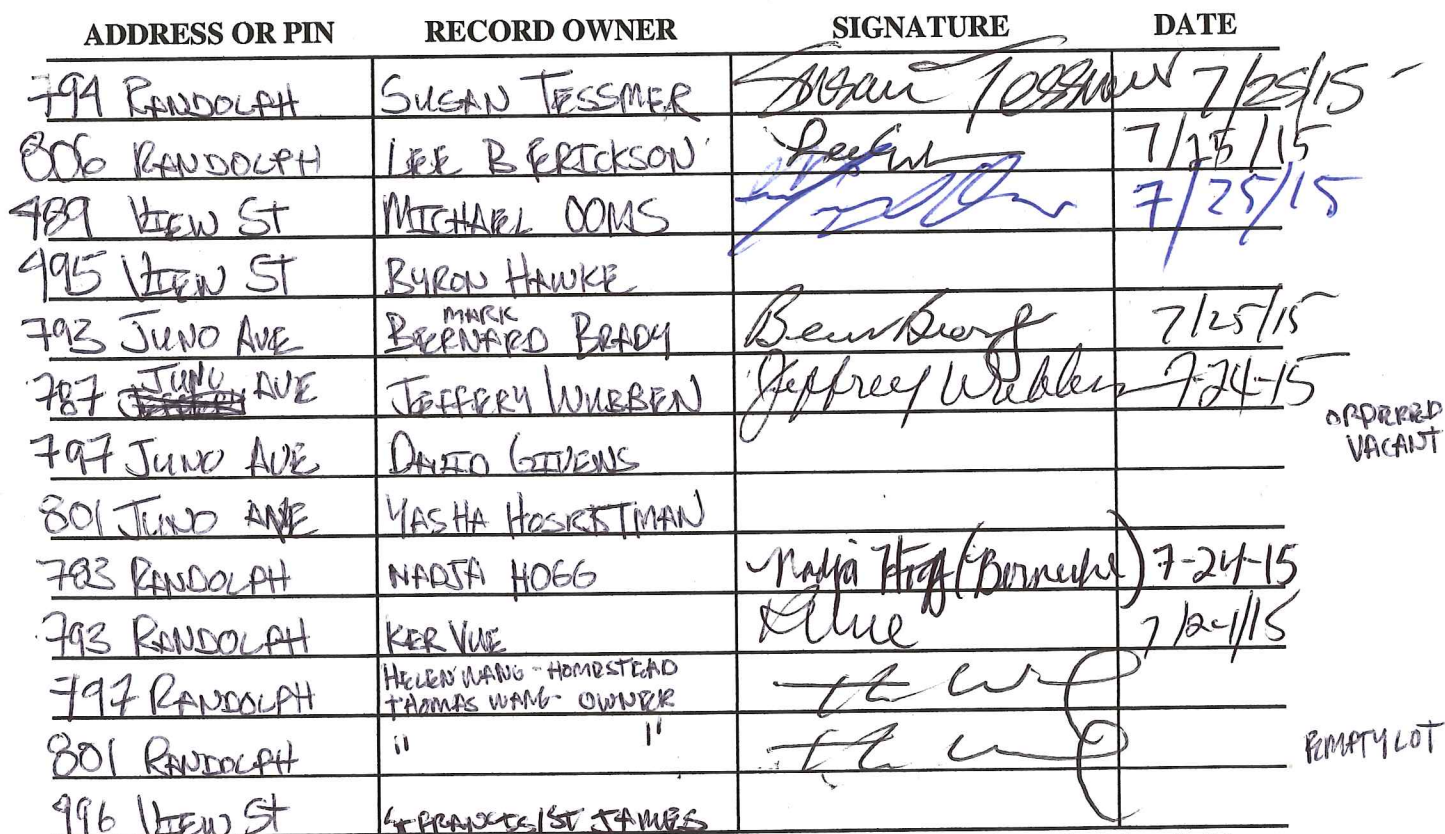 ADDRESS OR PIN RECORD OWNER SIGNATURE DATE
794 RANDOLPH SUSAN TESSMER Susan Tessmer 7/25/15
806 RANDOLPH LEE B ERICKSON 7/25/15
489 VIEW ST MICHAEL OOMS 7/25/15
495 VIEW ST BYRON HAWKE
793 JUNO AVE BERNARD MARK BRADY 7/25/15
787 JUNO AVE JEFFERY WUBBEN Jeffrey Wubben 7-24-15
797 JUNO AVE DAVID GIVENS VACANT
801 JUNO AVE YASHA
783 RANDOLPH NADJA HOGG Nadja Hogg 7-24-15
793 RANDOLPH KER VUE 7/24/15
797 RANDOLPH HELEN WANG - HOMESTEAD
THOMAS WANG - OWNER
801 RANDOLPH " " EMPTY LOT
496 VIEW ST ST FRANCIS/ST JAMES